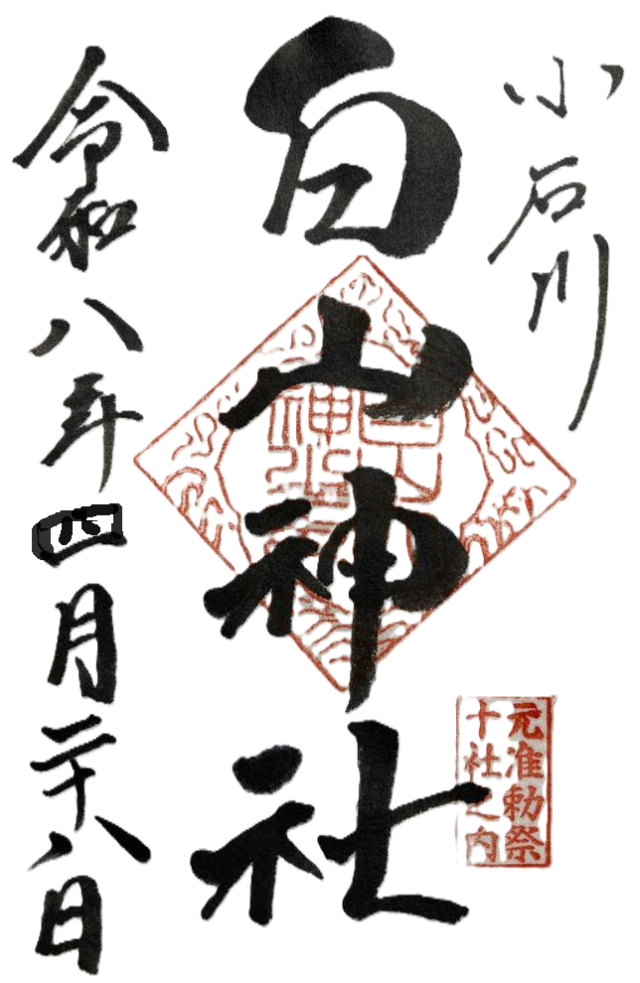 小石川
白山神社
元准勅祭
十社之内
令和八年四月二十八日